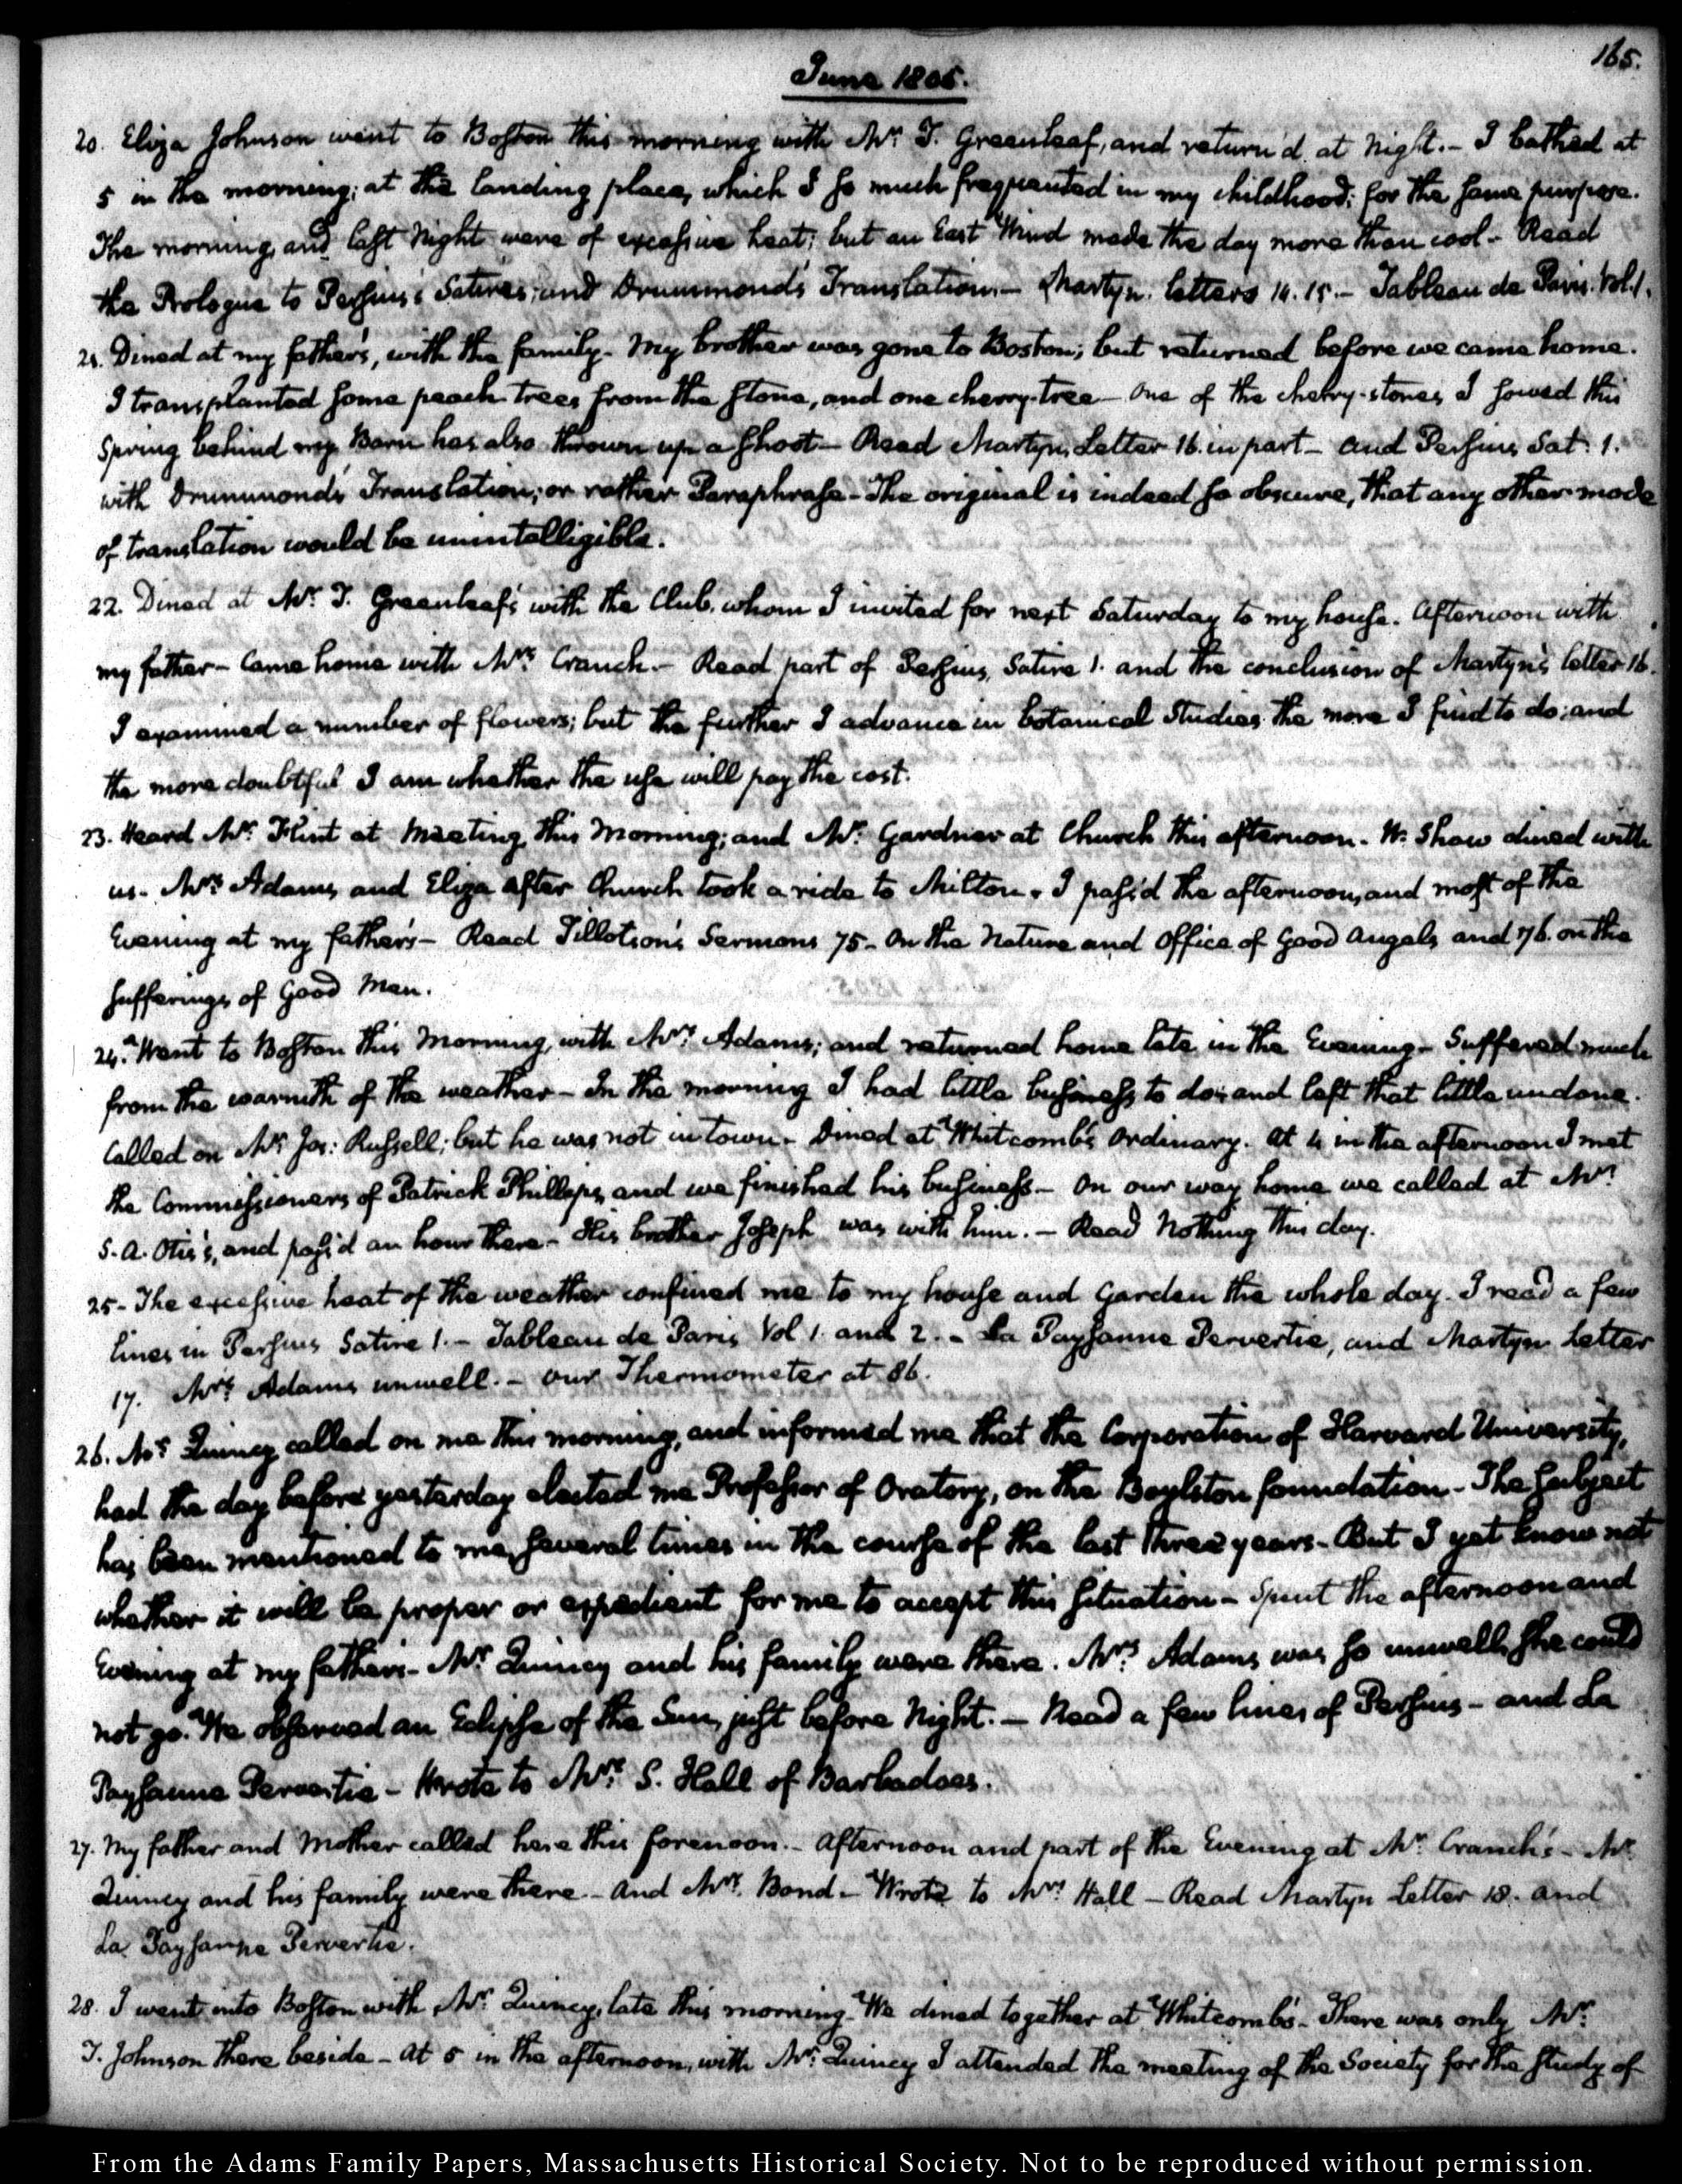 165.
June 1805.
20. Eliza Johnson went to Boston this morning with Mr. T. Greenleaf, and return'd at Night.— I bathed at
5 in the morning; at the landing place, which I so much frequented in my childhood; for the same purpose.
The morning, and last Night were of excessive heat; but an East Wind made the day more than cool— Read
the Prologue to Persius's Satires; and Drummond's Translation.— Martyn. letters 14. 15.— Tableau de Paris. Vol. 1.
21. Dined at my father's, with the family— My brother was gone to Boston; but returned before we came home.
I transplanted some peach trees from the stone, and one cherry-tree— One of the cherry-stones I sowed this
Spring behind my Barn has also thrown up a shoot— Read Martyn, Letter 16. in part— and Persius, Sat: 1.
with Drummond's Translation; or rather Paraphrase— The original is indeed so obscure, that any other mode
of translation would be unintelligible.
22. Dined at Mr. T. Greenleaf's with the Club, whom I invited for next Saturday to my house. Afternoon with
my father— Came home with Mrs. Cranch.— Read part of Persius, Satire 1. and the conclusion of Martyn's letter 16.
I examined a number of flowers; but the further I advance in botanical studies the more I find to do; and
the more doubtful I am whether the use will pay the cost.
23. Heard Mr. Flint at Meeting this Morning; and Mr. Gardner at Church this afternoon. W. Shaw dined with
us. Mrs. Adams, and Eliza after Church took a ride to Milton. I pass'd the afternoon, and most of the
Evening at my father's— Read Tillotson's Sermons 75— On the Nature and Office of Good Angels, and 76. on the
sufferings of Good Men.
24. Went to Boston this Morning, with Mrs. Adams; and returned home late in the Evening— Suffered much
from the warmth of the weather— In the morning I had little business to do; and left that little undone.
Called on Mr. Jos: Russell; but he was not in town— Dined at Whitcomb's Ordinary. At 4 in the afternoon I met
the Commissioners of Patrick Phillips, and we finished his business— On our way home we called at Mr.
S. A. Otis's, and pass'd an hour there— His brother Joseph was with him.— Read Nothing this day.
25— The excessive heat of the weather confined me to my house and Garden the whole day. I read a few
lines in Persius Satire 1.— Tableau de Paris Vol 1. and 2.— La Paysanne Pervertie, and Martyn Letter
17. Mrs. Adams unwell.— Our Thermometer at 86.
26. Mr. Quincy called on me this morning, and informed me that the Corporation of Harvard University,
had the day before yesterday elected me Professor of Oratory, on the Boylston foundation— The subject
has been mentioned to me, several times in the course of the last three years— But I yet know not
whether it will be proper or expedient for me to accept this situation— Spent the afternoon and
Evening at my father's— Mr. Quincy and his family were there. Mrs. Adams was so unwell, she could
not go. We observed an Eclipse of the Sun, just before Night.— Read a few lines of Persius— and La
Paysanne Pervertie— Wrote to Mr. S. Hall of Barbadoes.
27. My father and Mother called here this forenoon.— Afternoon and part of the Evening at Mr. Cranch's— Mr.
Quincy and his family were there.— And Mrs. Bond— Wrote to Mrs. Hall— Read Martyn Letter 18. and
La Paysanne Pervertie.
28. I went into Boston with Mr. Quincy, late this morning. We dined together at Whitcomb's— There was only Mr.
T. Johnson there beside— At 5 in the afternoon, with Mr. Quincy I attended the meeting of the Society for the study of
From the Adams Family Papers, Massachusetts Historical Society. Not to be reproduced without permission.